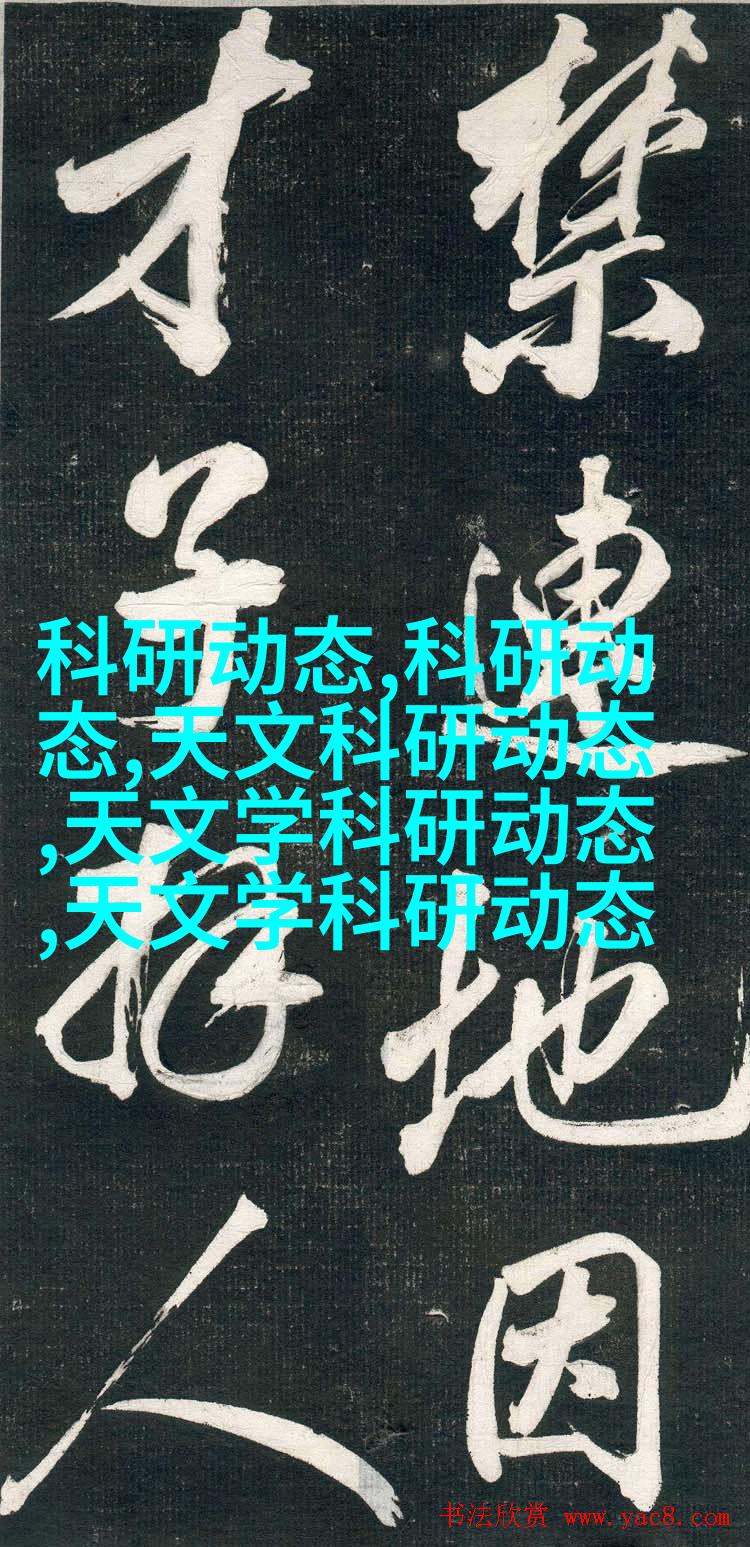 禁連地因
才人
科研动态,科研动
态,天文科研动态
,天文学科研动态
,天文学科研动态
书法欣赏 www.yac8.com